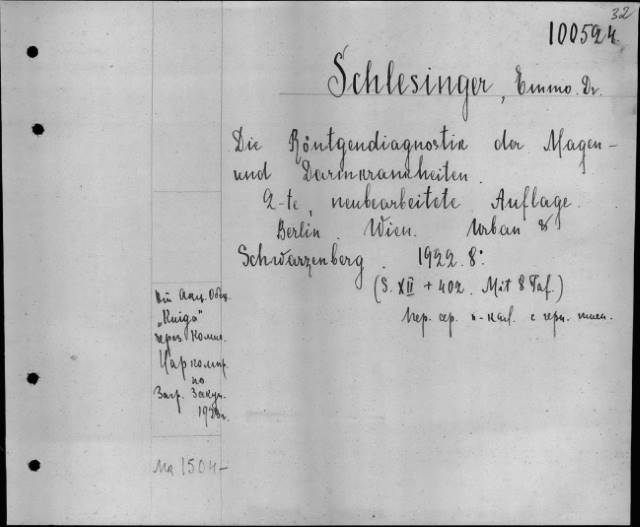 32
100594
Schlesinger, Emmo. Dr.
Die Röntgendiagnostik der Magen-
und Darmkrankheiten.
2-te, neubearbeitete Auflage.
Berlin. Wien. Urban &
Schwarzenberg. 1922. 8°.
(S. XII + 402. Mit 8 Taf.)
Пер. сер. к-кал. с черн. тисн.
Акц. Общ.
„Книга"
через Комис.
Наркомпр.
по
Загр. Закуп.
1923г.
Ma 1504-